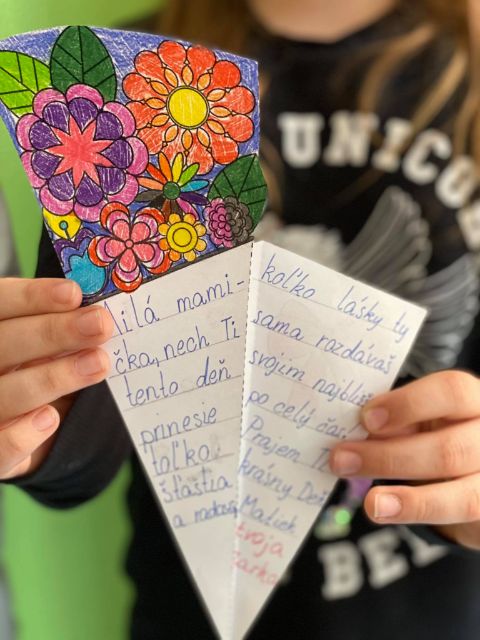 Milá mami-
čka, nech Ti
tento deň
prinesie
toľko
šťastia
a radosti
koľko lásky ty
sama rozdávaš
svojim
po celý čas.
Prajem
krásny Deň
Matiek
tvoja